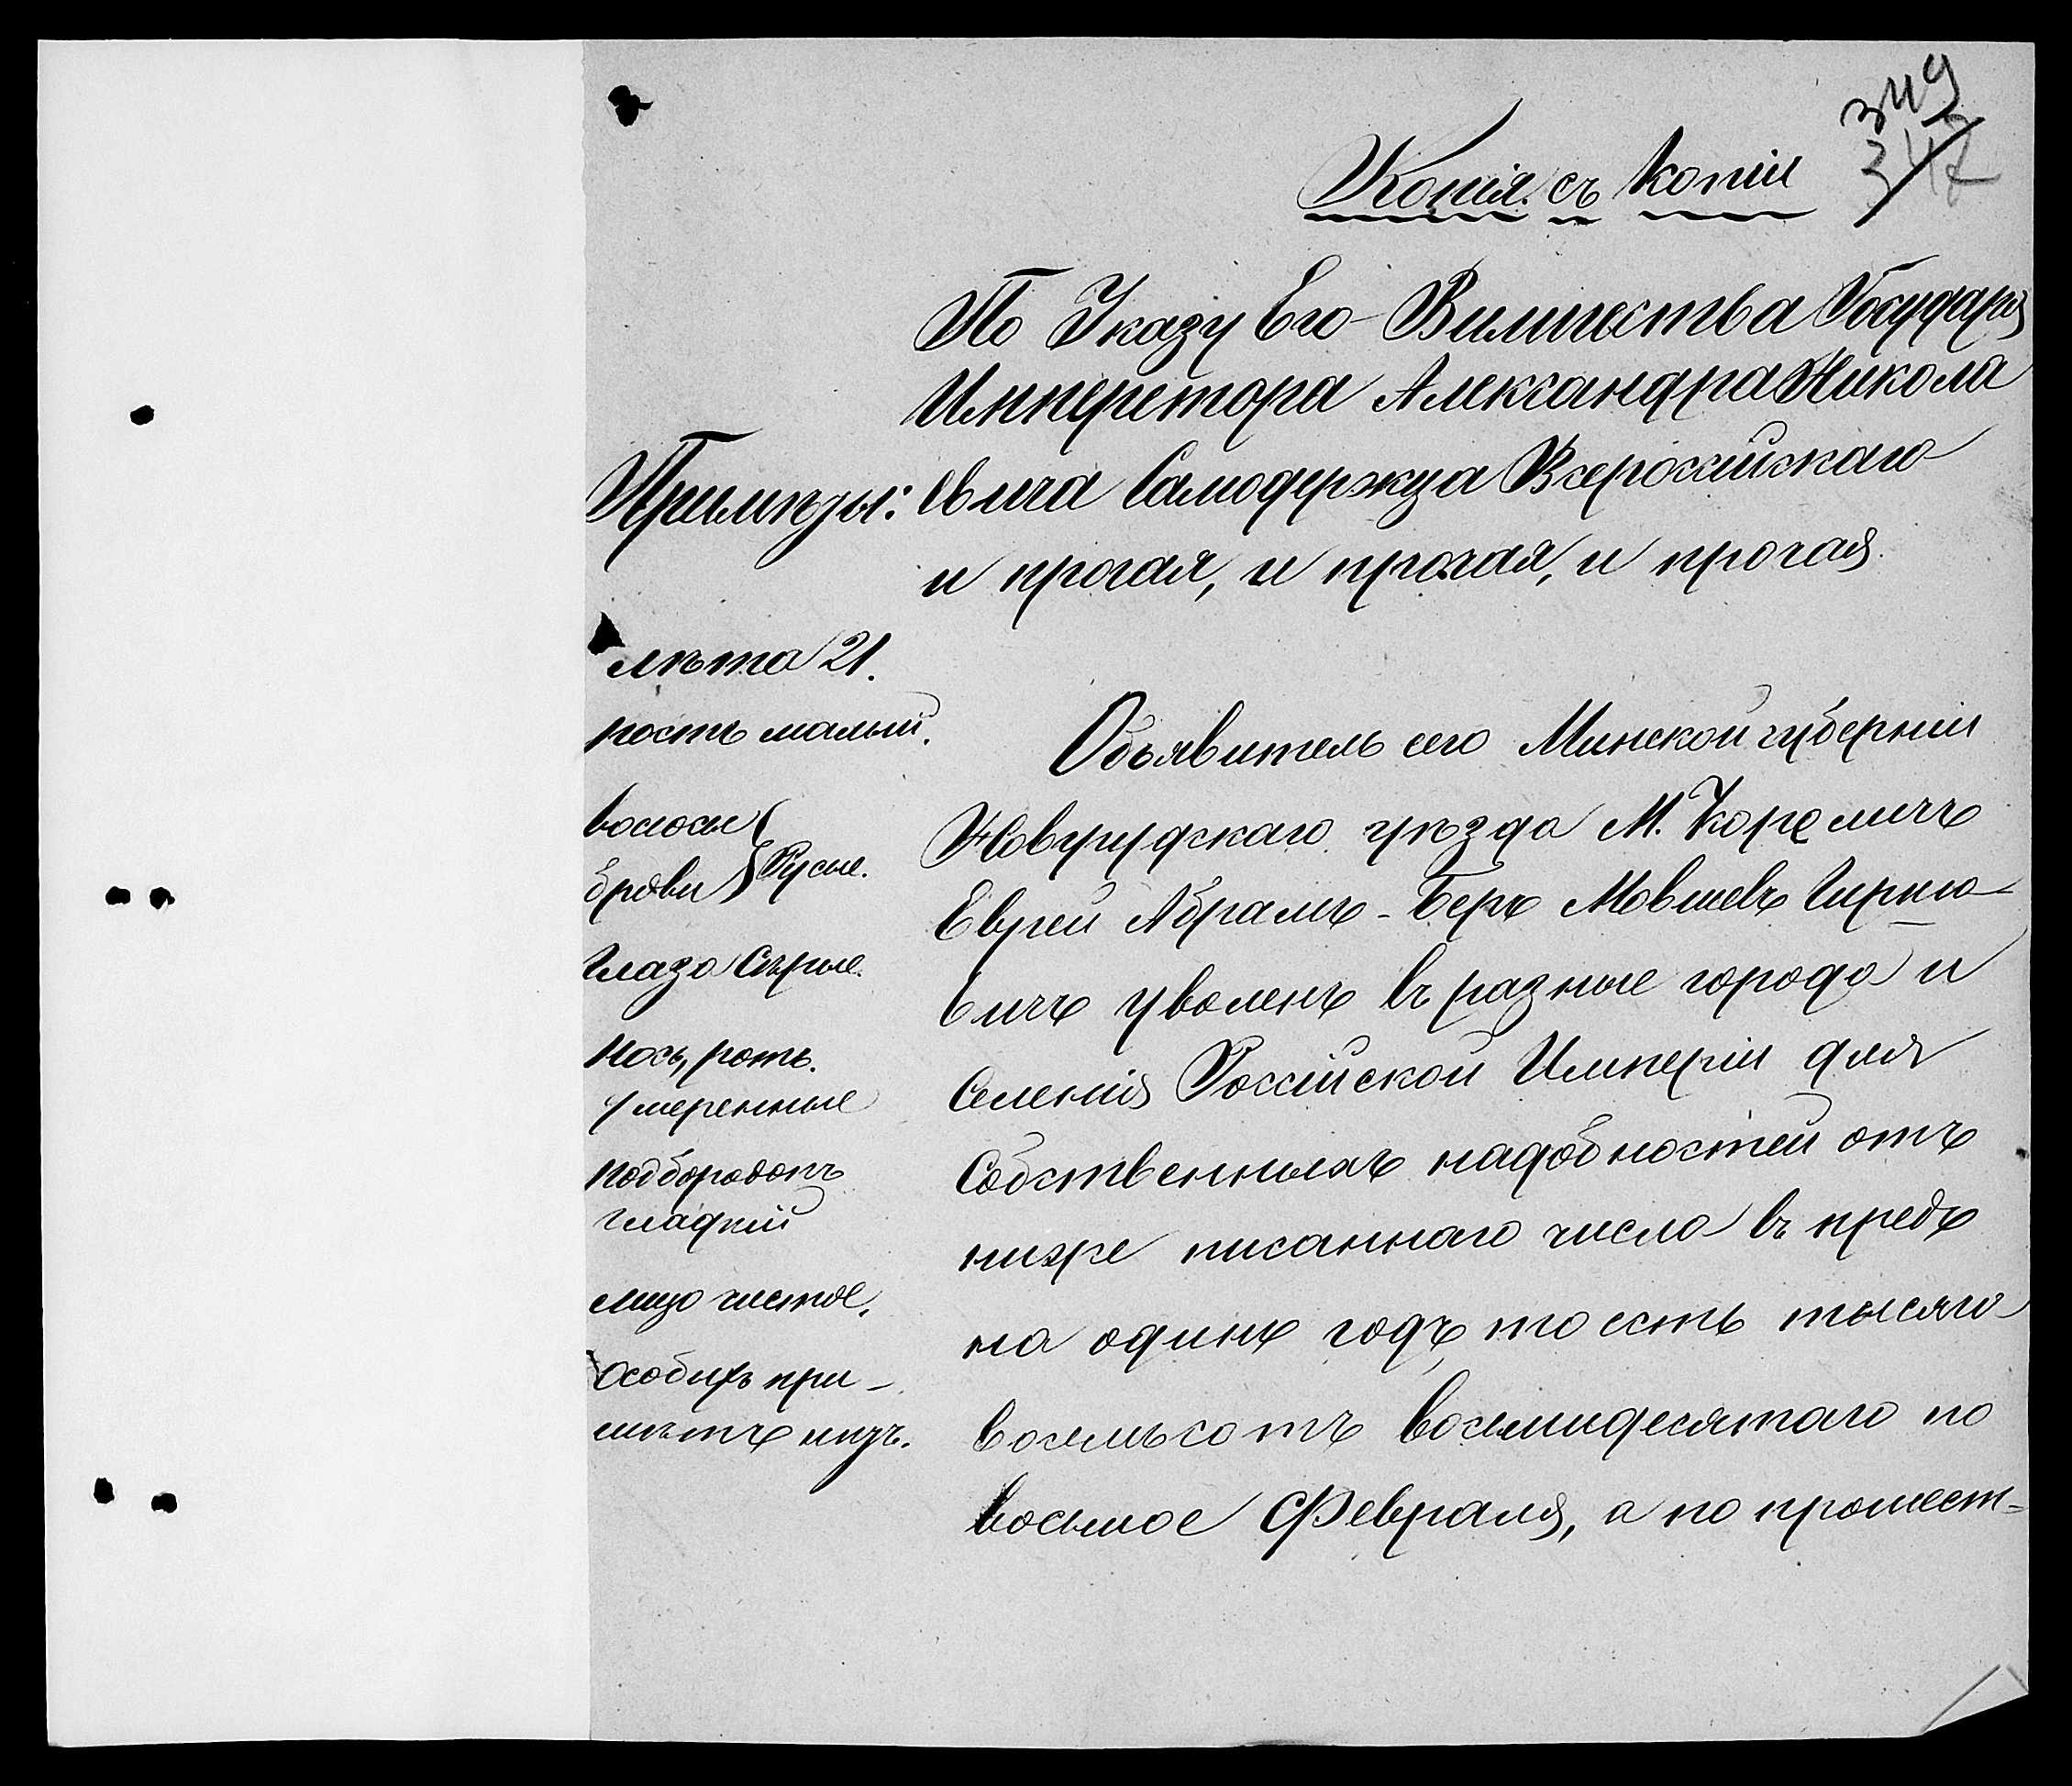 349
347
Копія съ копіи
По Указу Его Виличества Государя
Имперетора Александра Никола
Примѣты: евича Самодержца Всероссійскаго
и прочая, и прочая, и прочая.
лѣта 21.
ростъ малый.
волосы
брови } Русые.
глаза Сѣрые.
носъ, ротъ.
умеренные
подбородокъ
гладкій
лицо чистое.
Особыхъ при-
мѣтъ нѣтъ.
Объявитель сего Минской губерніи
Новгрудскаго уѣзда М. Кореличъ
Еврей Абрамъ-Беръ Мовшевъ
вичъ уволенъ въ разные города и
Селенія Россійской Имперіи для
Собственныхъ надобностей отъ
ниже писаннаго числа въ предъ
на одинъ годъ, то есть тысяго
восемьсотъ восемидесятаго по
восьмое Февраля, а по прошест-